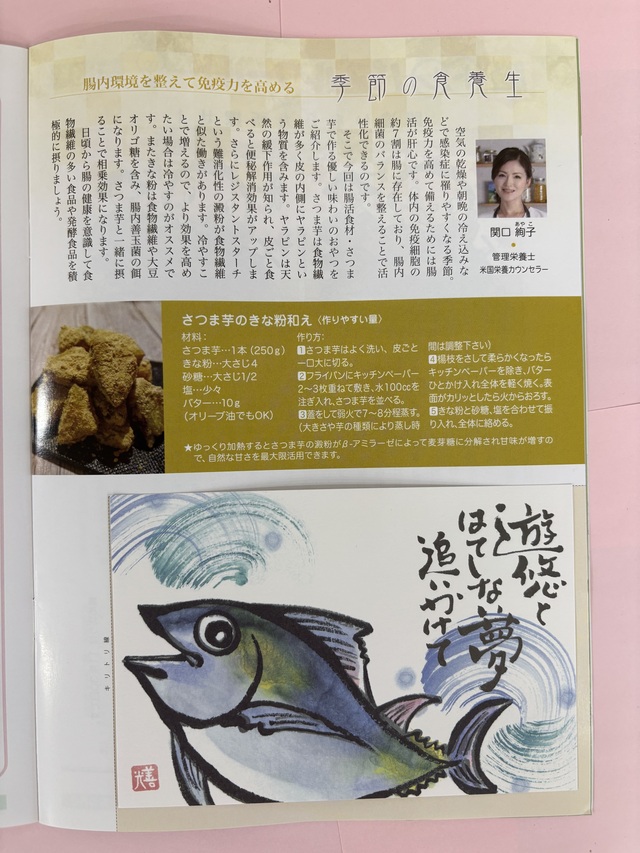 季節の食養生
腸内環境を整えて免疫力を高める
関口 絢子
あやこ
管理栄養士
米国栄養カウンセラー
空気の乾燥や朝晩の冷え込みな
どで感染症に罹りやすくなる季節。
免疫力を高めて備えるためには腸
活が肝心です。体内の免疫細胞の
約7割は腸に存在しており、腸内
細菌のバランスを整えることで活
性化できるのです。
そこで今回は腸活食材・さつま
芋で作る優しい味わいのおやつを
ご紹介します。さつま芋は食物繊
維が多く皮の内側にヤラピンとい
う物質を含みます。ヤラピンは天
然の緩下作用が知られ、皮ごと食
べると便秘解消効果がアップしま
す。さらにレジスタントスターチ
という難消化性の澱粉が食物繊維
と似た働きがあります。冷やすこ
とで増えるので、より効果を高め
たい場合は冷やすのがオススメで
す。またきな粉は食物繊維や大豆
オリゴ糖を含み、腸内善玉菌の餌
になります。さつま芋と一緒に摂
ることで相乗効果になります。
日頃から腸の健康を意識して食
物繊維の多い食品や発酵食品を積
極的に摂りましょう。
さつま芋のきな粉和え〈作りやすい量〉
材料：
さつま芋…1本（250g）
きな粉…大さじ4
砂糖…大さじ1/2
塩…少々
バター…10g
（オリーブ油でもOK）
作り方：
1さつま芋はよく洗い、皮ごと
一口大に切る。
2フライパンにキッチンペーパー
2〜3枚重ねて敷き、水100ccを
注ぎ入れ、さつま芋を並べる。
3蓋をして弱火で7〜8分程蒸す。
（大きさや芋の種類により蒸し時
間は調整下さい）
4楊枝をさして柔らかくなったら
キッチンペーパーを除き、バター
ひとかけ入れ全体を軽く焼く。表
面がカリッとしたら火からおろす。
5きな粉と砂糖、塩を合わせて振
り入れ、全体に絡める。
★ゆっくり加熱するとさつま芋の澱粉がβ-アミラーゼによって麦芽糖に分解され甘味が増すの
で、自然な甘さを最大限活用できます。
遊悠と
はてしな夢
追いかけて
キリトリ線